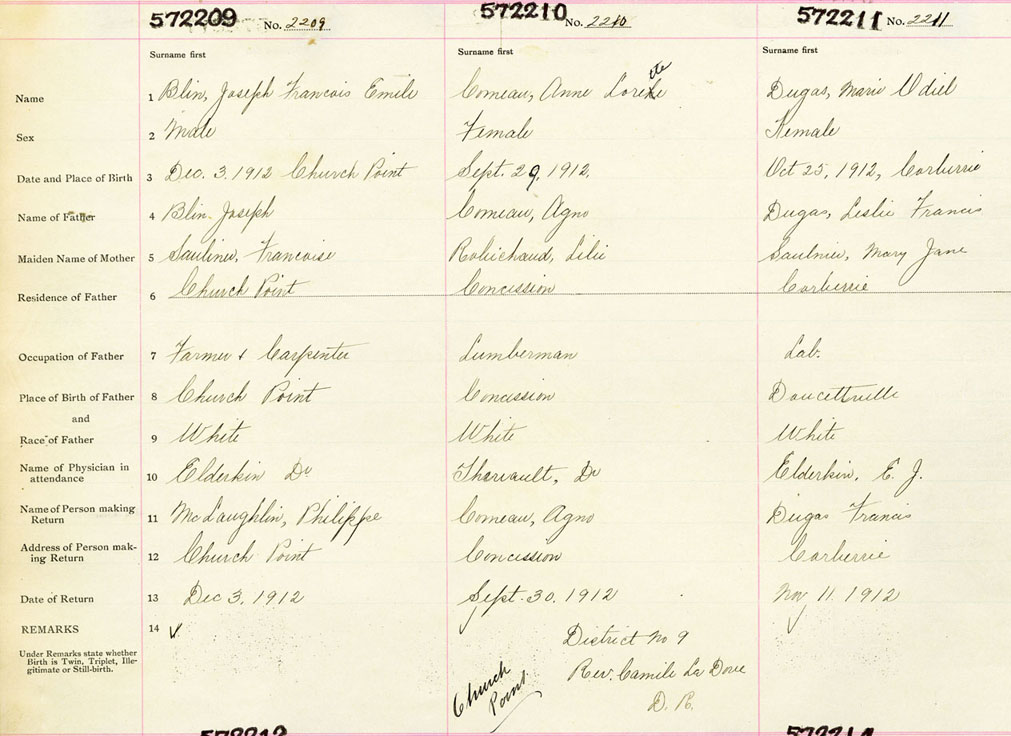 572209 No. 2209 572210 No. 2210 572211 No. 2211
Surname first Surname first Surname first
Name 1 Blin, Joseph Francois Emile Comeau, Anne Dugas, Marie Odiel
Sex 2 Male Female Female
Date and Place of Birth 3 Dec. 3. 1912 Church Point Sept. 29, 1912. Oct 25, 1912, Corberrie
Name of Father 4 Blin, Joseph Comeau, Agno Dugas, Leslie Francis
Maiden Name of Mother 5 Saulnier, Francoise Robichaud, Lilie Saulnier, Mary Jane
Residence of Father 6 Church Point Concission Corberrie
Occupation of Father 7 Farmer & Carpenter Lumberman Lab.
Place of Birth of Father 8 Church Point Concission Doucettville
and
Race of Father 9 White White White
Name of Physician in attendance 10 Elderkin Dr Theriault, Dr Elderkin, E. J.
Name of Person making Return 11 McLaughlin, Philippe Comeau, Agno Dugas Francis
Address of Person mak-ing Return 12 Church Point Concission Corberrie
Date of Return 13 Dec 3. 1912 Sept. 30. 1912 Nov 11. 1912
REMARKS 14
Under Remarks state whether
Birth is Twin, Triplet, Ille-
gitimate or Still-birth.
District No 9
Rev. Camile Le Dore
D. R.
Church
Point